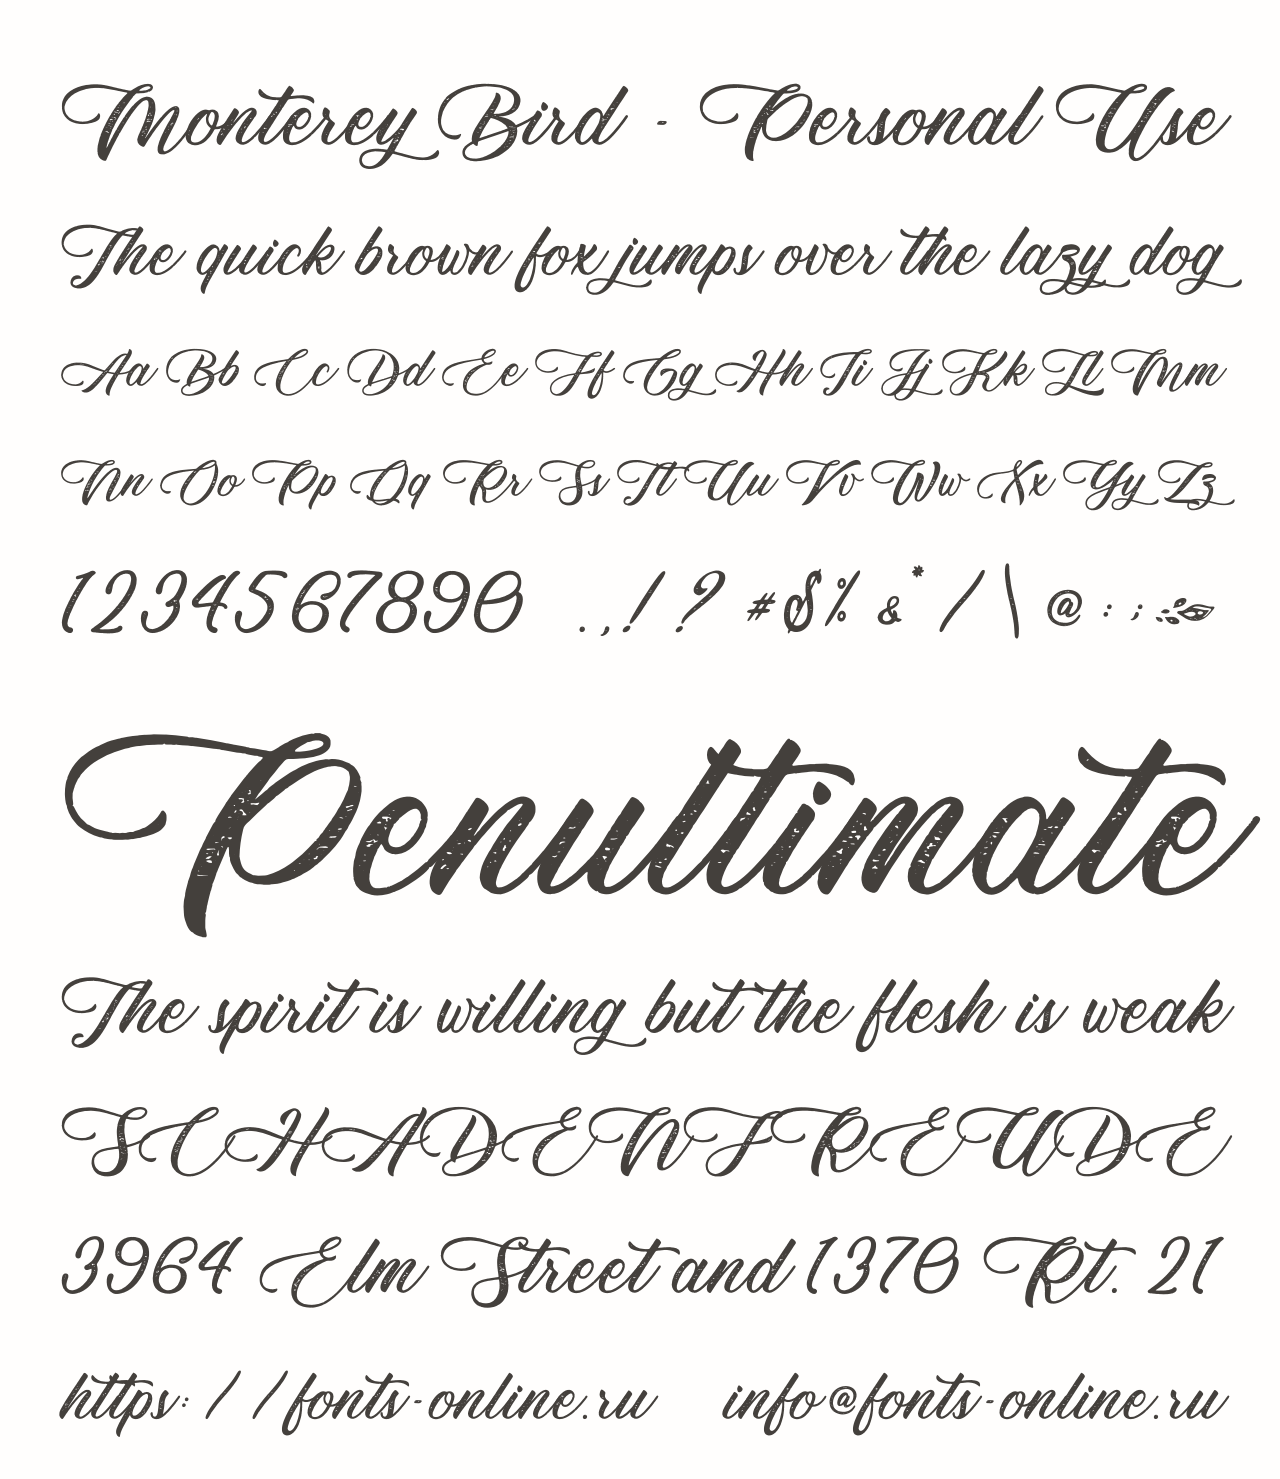 Monterey Bird - Personal Use
The quick brown fox jumps over the lazy dog
Aa Bb Cc Dd Ee Ff Gg Hh Ii Jj Kk Ll Mm
Nn Oo Pp Qq Rr Ss Tt Uu Vv Ww Xx Yy Zz
1234567890 .,! ? #$% &* / \ @ : ;
Penultimate
The spirit is willing but the flesh is weak
SCHADENFREUDE
3964 Elm Street and 1370 Rt. 21
https://fonts-online.ru info@fonts-online.ru